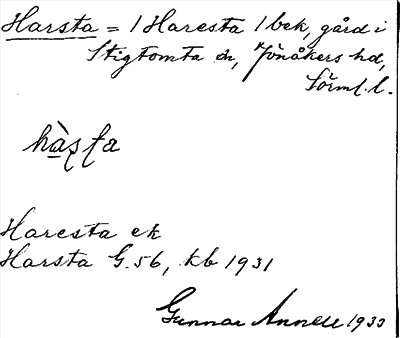 Harsta = / Haresta / bek, gård i
Stigtomta sn, Jönåkers hd,
Sörml. l.
hàʂʈa
Haresta ek
Harsta G. 56, kb 1931
Gunnar Annell 1933